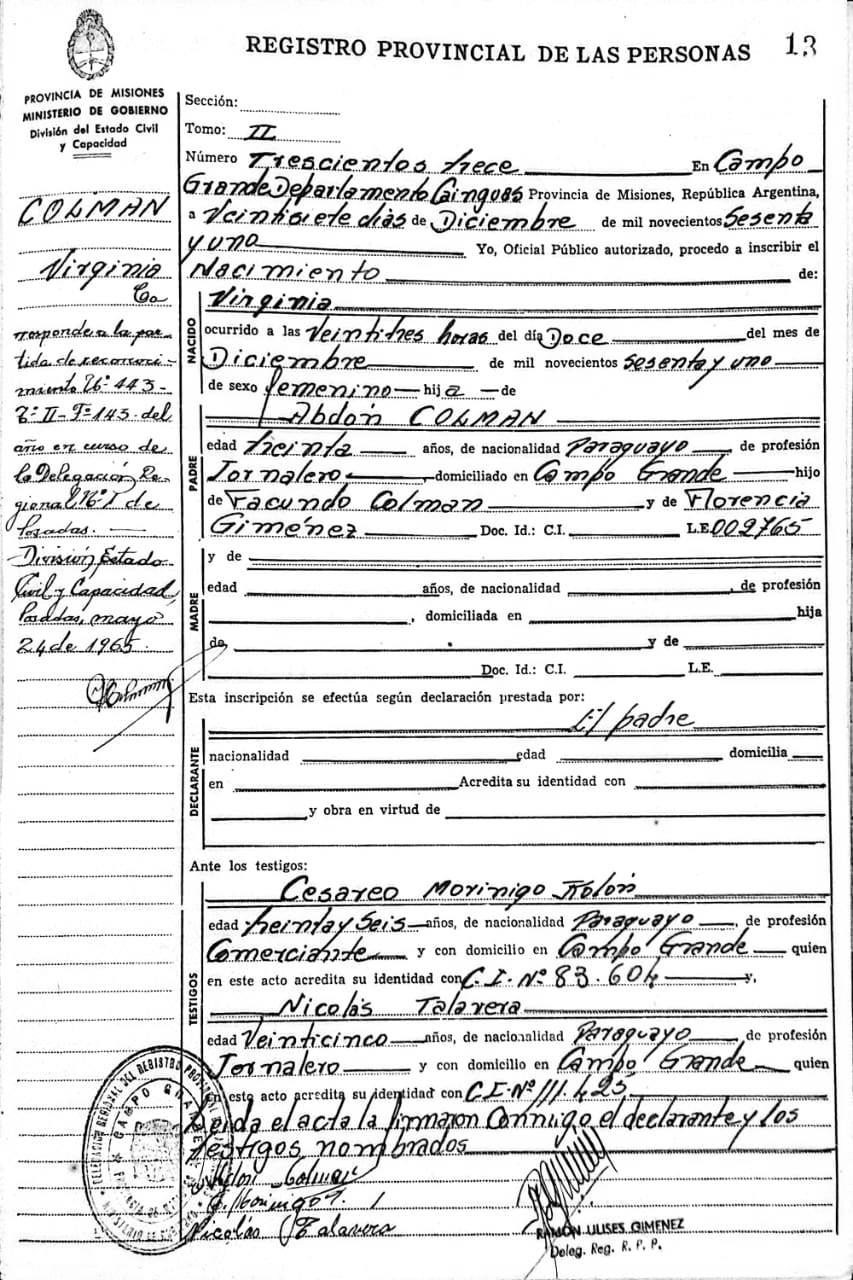 REGISTRO PROVINCIAL DE LAS PERSONAS 13
PROVINCIA DE MISIONES
MINISTERIO DE GOBIERNO
División del Estado Civil
y Capacidad
COLMAN
Virginia
Co
rresponde a la par-
tida de reconoci-
miento Nº 443-
Tº II- Fº 143- del
año en curso de
la Delegación Re-
gional Nº 1 de
Posadas.
División Estado
Civil y Capacidad,
Posadas, mayo
24 de 1965.
Sección:
Tomo: II
Número Trescientos trece En Campo
Grande Departamento Cainguás Provincia de Misiones, República Argentina,
a Veintisiete días de Diciembre de mil novecientos Sesenta
y uno Yo, Oficial Público autorizado, procedo a inscribir el
Nacimiento de:
NACIDO
Virginia
ocurrido a las Veintitres horas del día Doce del mes de
Diciembre de mil novecientos Sesenta y uno
de sexo femenino hija de
PADRE
Abdón COLMAN
edad treinta años, de nacionalidad Paraguayo de profesión
Jornalero domiciliado en Campo Grande hijo
de Facundo Colman y de Florencia
Giménez Doc. Id.: C.I. L.E. 002765
MADRE
y de
edad años, de nacionalidad , de profesión
, domiciliada en hija
de y de
Doc. Id.: C.I. L.E.
Esta inscripción se efectúa según declaración prestada por:
El padre
DECLARANTE
nacionalidad edad domicilia
en Acredita su identidad con
y obra en virtud de
Ante los testigos:
TESTIGOS
Cesareo Morinigo Rolón
edad treinta y Seis años, de nacionalidad Paraguayo, de profesión
Comerciante y con domicilio en Campo Grande quien
en este acto acredita su identidad con C.I. Nº 83.604 y,
Nicolás Talavera
edad Veinticinco años, de nacionalidad Paraguayo, de profesión
Jornalero y con domicilio en Campo Grande quien
en este acto acredita su identidad con C.I. Nº 111.425
Leida el acta la firmaron conmigo el declarante y los
testigos nombrados
Abdon Colman
Nicolás Talavera
RAMÓN ULISES GIMENEZ
Deleg. Reg. R. P. P.
CAMPO GRANDE